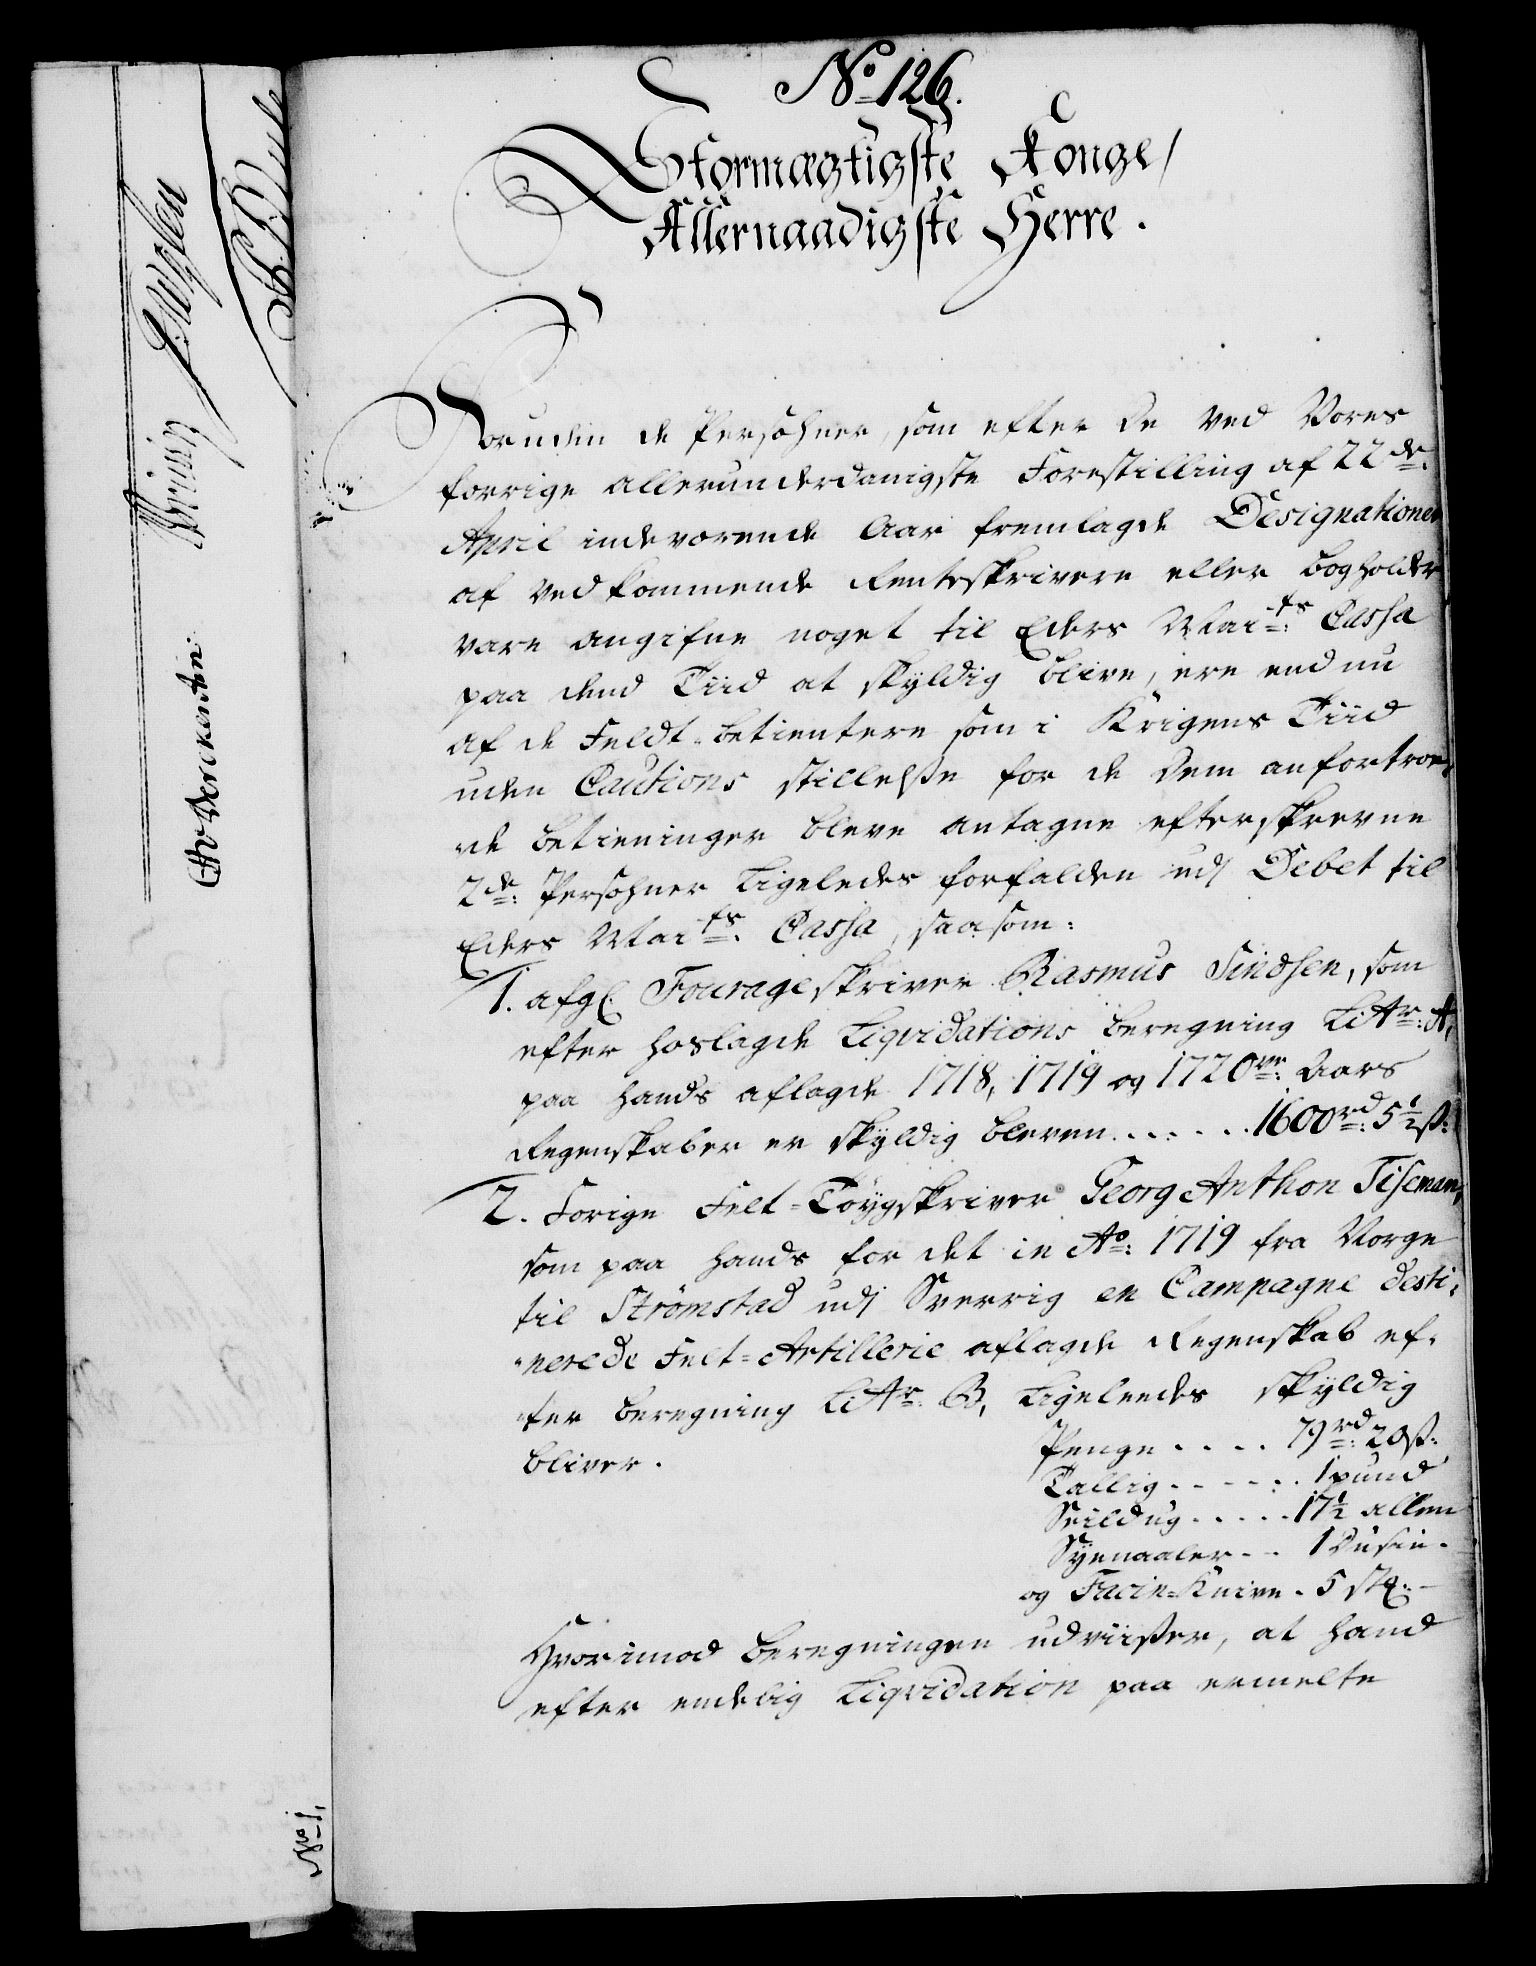 No 126.
Stormægtigste Konge/
Allernaadigste Herre.
Foruden de Persohner, som efter de ved Vores
forrige allerunderdanigste Forestilling af 22de
April indeværende Aar fremlagde Designationer
af vedkommende Renteskrivere eller Bogholder
vare angifne noget til Eders Maits Cassa
paa dend Tiid at skyldig blive, ere endnu
af de Feldt-betientere som i Krigens Tiid
uden Cautions stillelße for de dem anfortroe,
de betieninger bleve antagne efterskrevne
2de Persohner Ligeledes forfalden udj Debet til
Eders Maits Cassa, saasom:
1. afg: Fourageskriver Rasmus Sindsen, som
efter hoslagde Liqvidations beregning Litr: A,
paa hands aflagde 1718, 1719 og 1720ve Aars
Regenskaber er skyldig bleven. . . . . . . 1600rd: 5½ß:
2. Forige Felt-Töygskriver Georg Anthon Tiseman,
som paa hands for det in Ao: 1719 fra Norge
til Strömstad udj Sverrig en Campagne desti-
nerede Felt-Artillerie aflagde Regenskab ef-
ter beregning Litr B, Ligeleedes skyldig
bliver.
Penge . . . . 79rd: 20ß:
Tallig . . . . . . 1 pund
Seildug . . . . . 17½ allen
Syenaaler . . 1 Dusin.
og Facin-Knive . 5 stk:
Hvorimod beregningen udviißer, at hand
efter endelig Liqvidation paa ermelte
No 1,